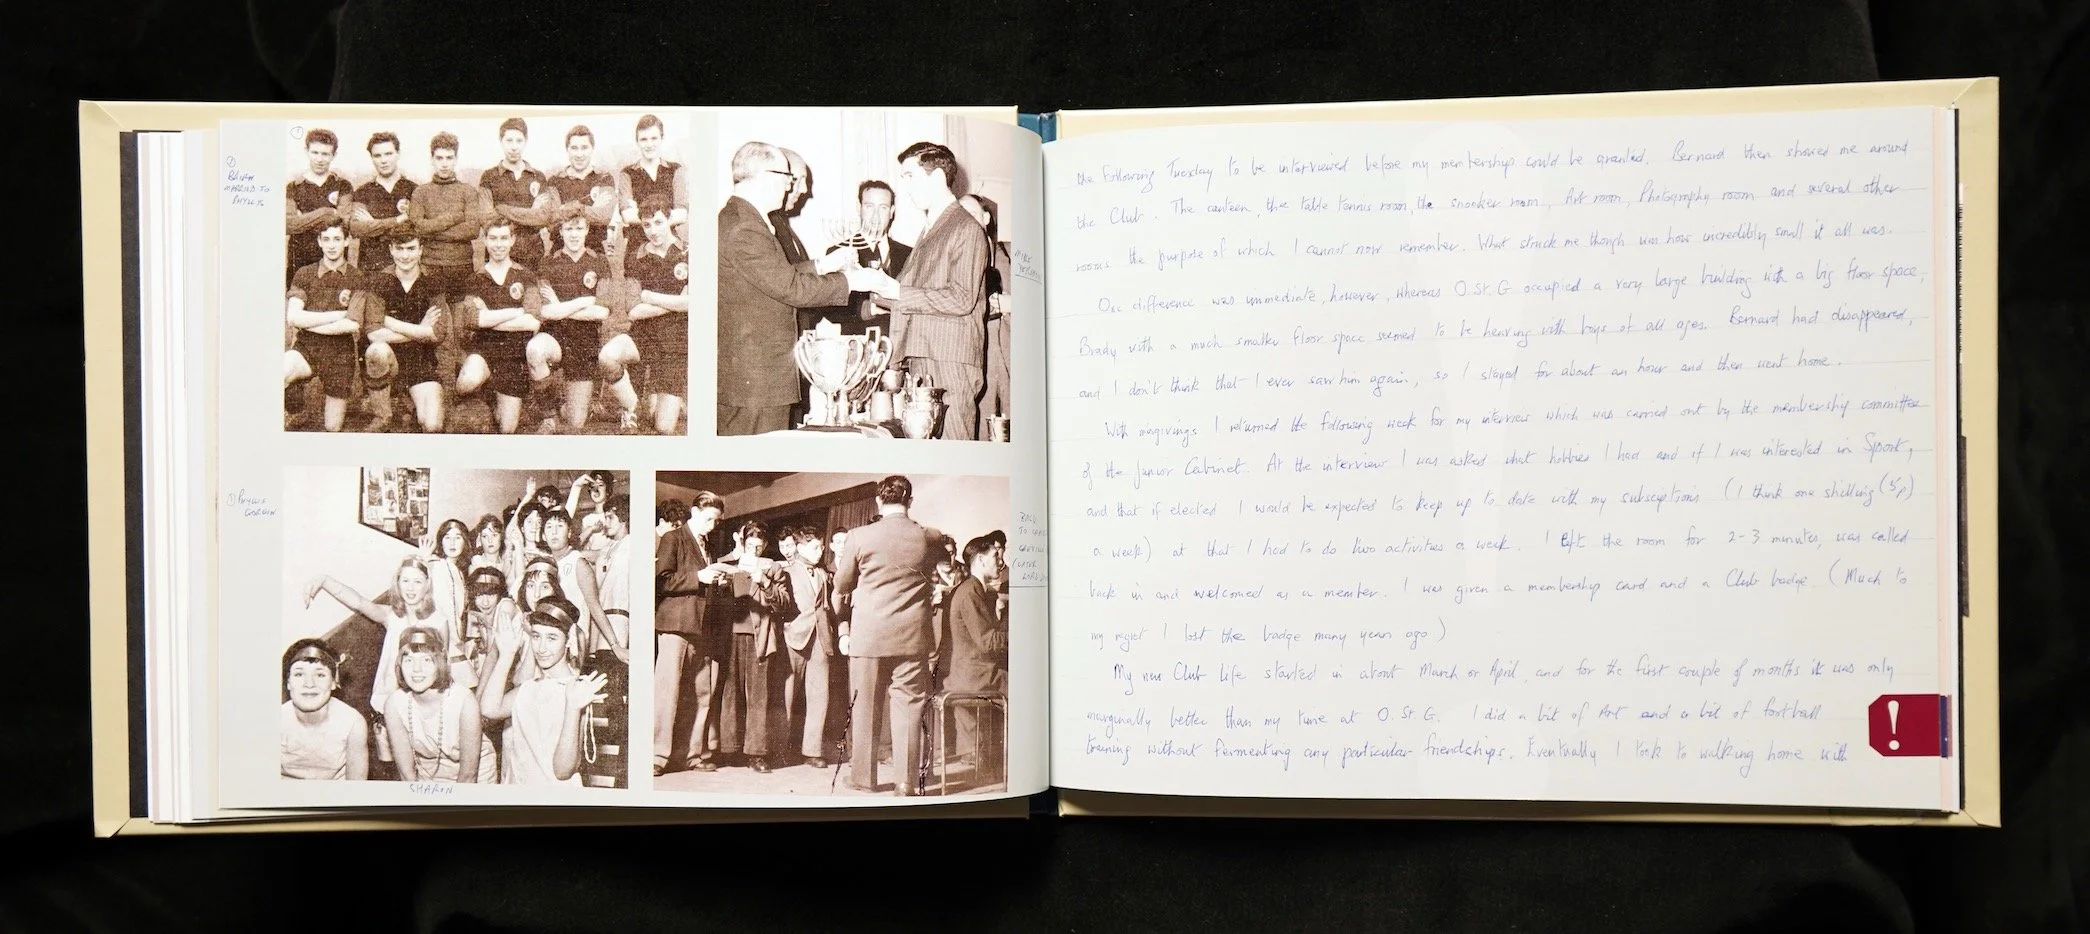 ①
①
BRIAN
MARRIED TO
PHYLLIS
MIKE
① PHYLLIS
GORDON
①
SHARON
BACK
TO
(LATER
LORD
the following Tuesday to be interviewed before my membership could be granted. Bernard then showed me around
the Club. The canteen, the table tennis room, the snooker room, Art room, Photography room and several other
rooms the purpose of which I cannot now remember. What struck me though was how incredibly small it all was.
One difference was immediate, however, whereas O.St.G occupied a very large building with a big floor space,
Brady with a much smaller floor space seemed to be heaving with boys of all ages. Bernard had disappeared,
and I don't think that I ever saw him again, so I stayed for about an hour and then went home.
With misgivings I returned the following week for my interview which was carried out by the membership committee
of the Junior Cabinet. At the interview I was asked what hobbies I had and if I was interested in Sport,
and that if elected I would be expected to keep up to date with my subscriptions (I think one shilling (5p)
a week) at that I had to do two activities a week. I left the room for 2-3 minutes, was called
back in and welcomed as a member. I was given a membership card and a Club badge. (Much to
my regret I lost the badge many years ago)
My new Club life started in about March or April, and for the first couple of months it was only
marginally better than my time at O.St G. I did a bit of Art and a bit of football
training without fermenting any particular friendships. Eventually I took to walking home with
!